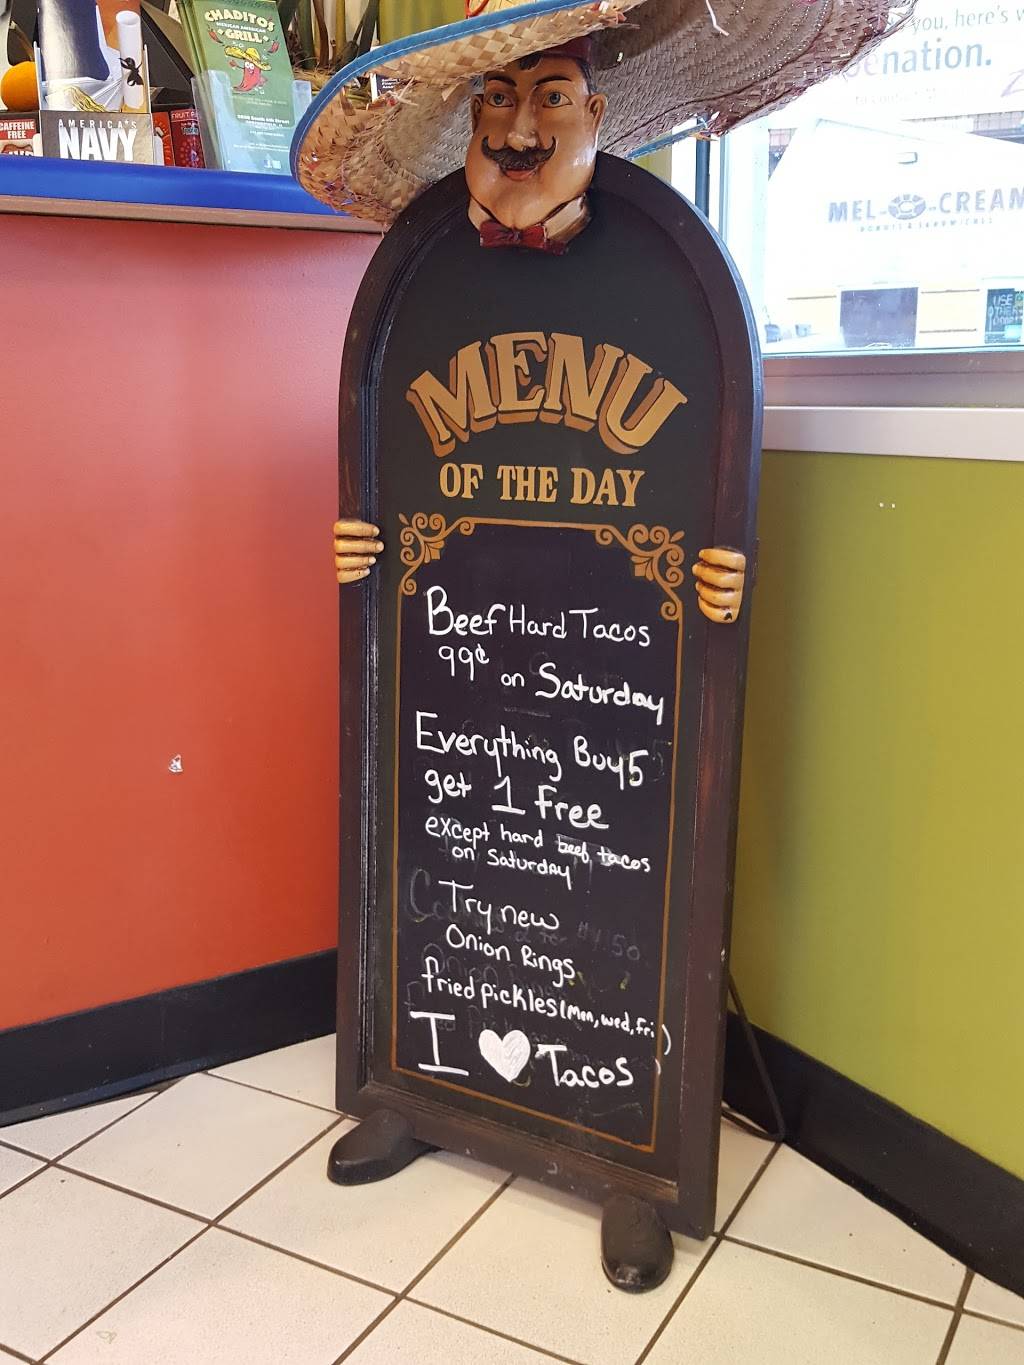 CHADITO'S
MEXICAN AMERICAN
GRILL
CAFFEINE
FREE
AMERICA'S
NAVY
FRUIT
you, here's w
enation.
MEL-O-CREAM
DONUTS & SANDWICHES
USE
OTHER
DOOR
MENU
OF THE DAY
Beef Hard Tacos
99¢ on Saturday
Everything Buy 5
get 1 free
except hard beef tacos
on Saturday
Try new
Onion Rings
fried pickles (Mon, wed, fri)
I ♥ Tacos